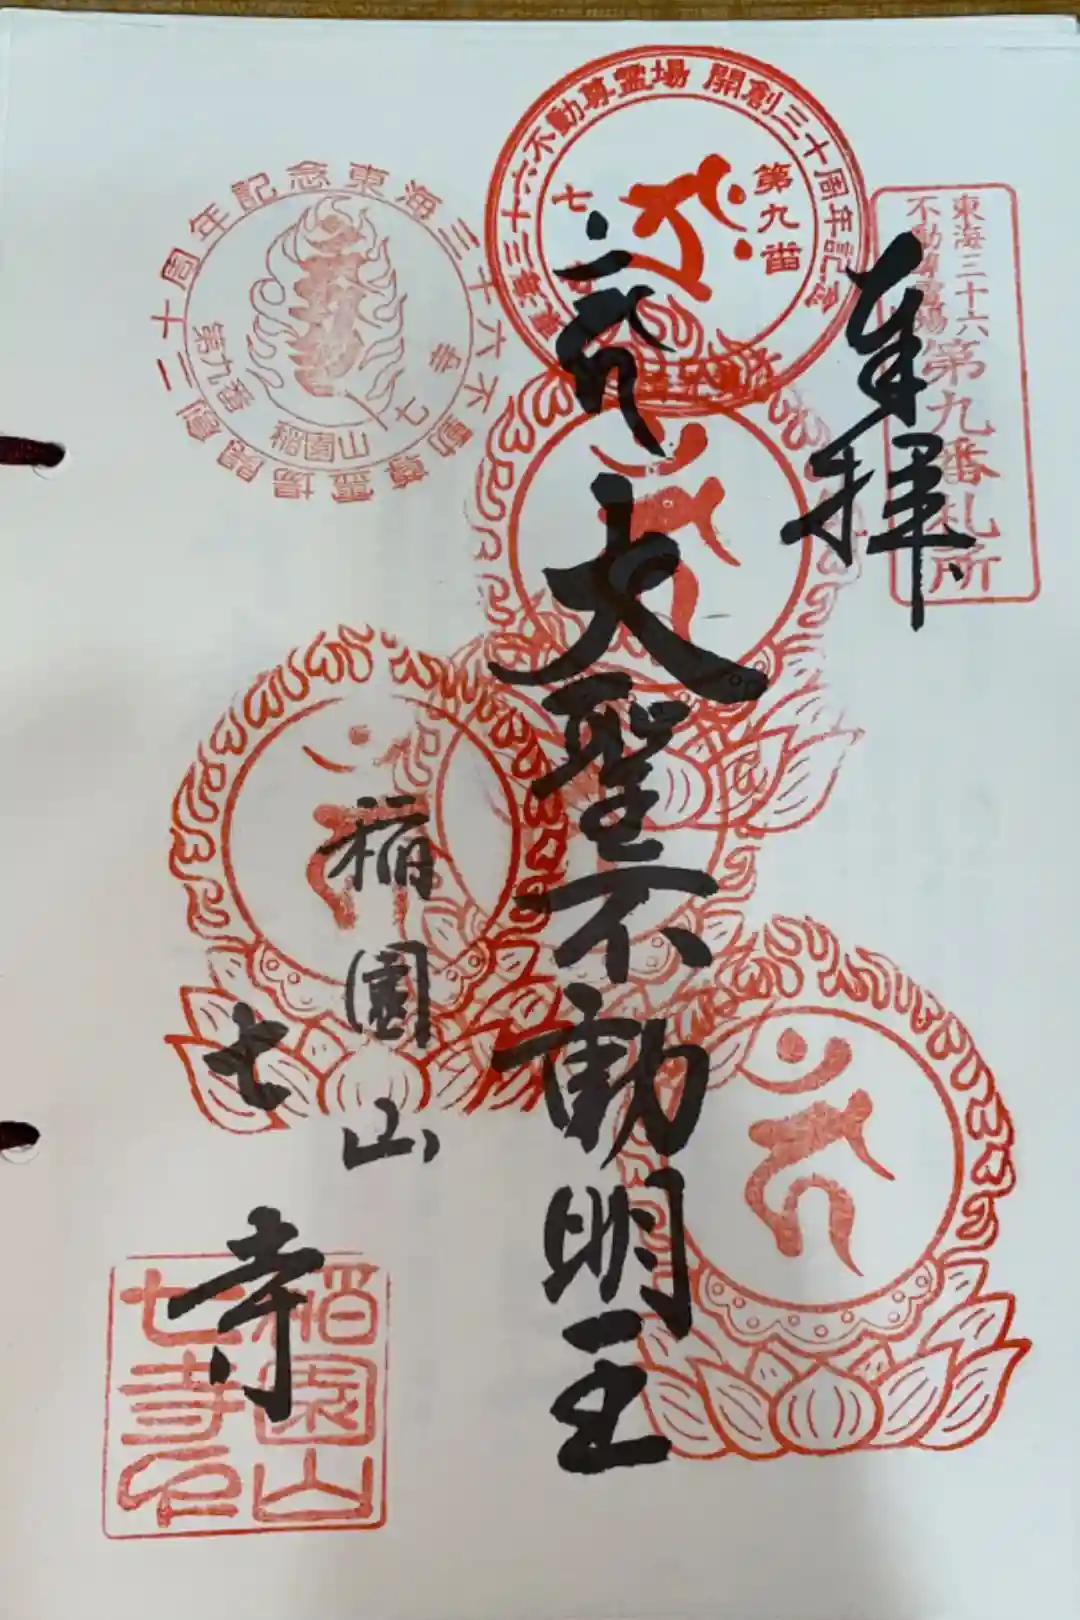 東海三十六
不動尊霊場
第九番札所
奉拝
東海三十六不動尊霊場 開創三十周年記念
第九番
七
大聖不動明王
稲園山
七寺
東海三十六不動尊霊場開創二十周年記念
第九番
稲園山
七寺
稲園山
七寺印